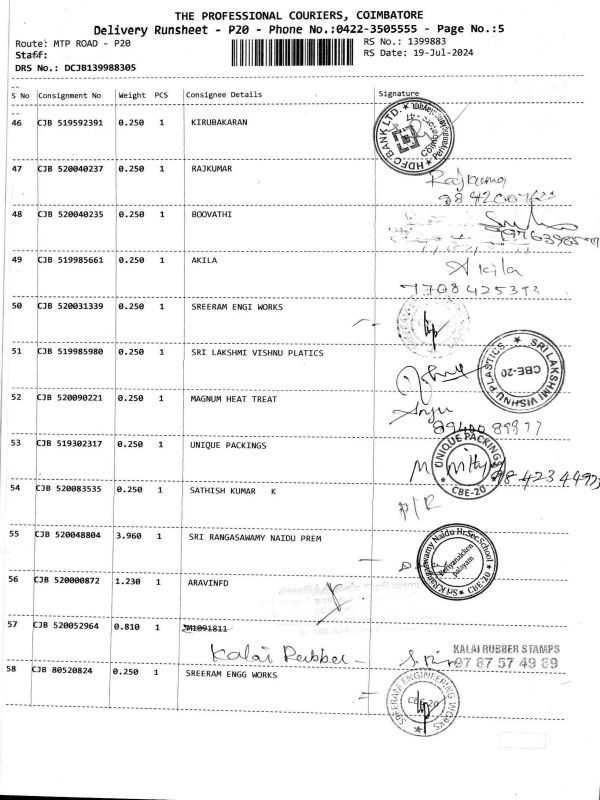 THE PROFESSIONAL COURIERS, COIMBATORE
Delivery Runsheet - P20 - Phone No.:0422-3505555 - Page No.:5
Route: MTP ROAD - P20
RS No.: 1399883
Staff:
RS Date: 19-Jul-2024
DRS No.: DCJB139988305
S No Consignment No Weight PCS Consignee Details Signature
46 CJB 519592391 0.250 1 KIRUBAKARAN
HDFC BANK LTD.
47 CJB 520040237 0.250 1 RAJKUMAR
Rajkumar
48 CJB 520040235 0.250 1 BOOVATHI
49 CJB 519985661 0.250 1 AKILA
Akila
50 CJB 520031339 0.250 1 SREERAM ENGI WORKS
51 CJB 519985980 0.250 1 SRI LAKSHMI VISHNU PLATICS
SRI LAKSHMI VISHNU PLASTICS
CBE-20
52 CJB 520090221 0.250 1 MAGNUM HEAT TREAT
53 CJB 519302317 0.250 1 UNIQUE PACKINGS
UNIQUE PACKINGS
CBE-20
54 CJB 520083535 0.250 1 SATHISH KUMAR K
P/R
55 CJB 520048804 3.960 1 SRI RANGASAWAMY NAIDU PREM
Sri K.Rangaswamy Naidu Hr.Sec.School
CBE-20
56 CJB 520000872 1.230 1 ARAVINFD
57 CJB 520052964 0.810 1
Kalai Rubber
KALAI RUBBER STAMPS
97 87 57 49 89
58 CJB 80520824 0.250 1 SREERAM ENGG WORKS
SREERAM ENGINEERING WORKS
CBE-20